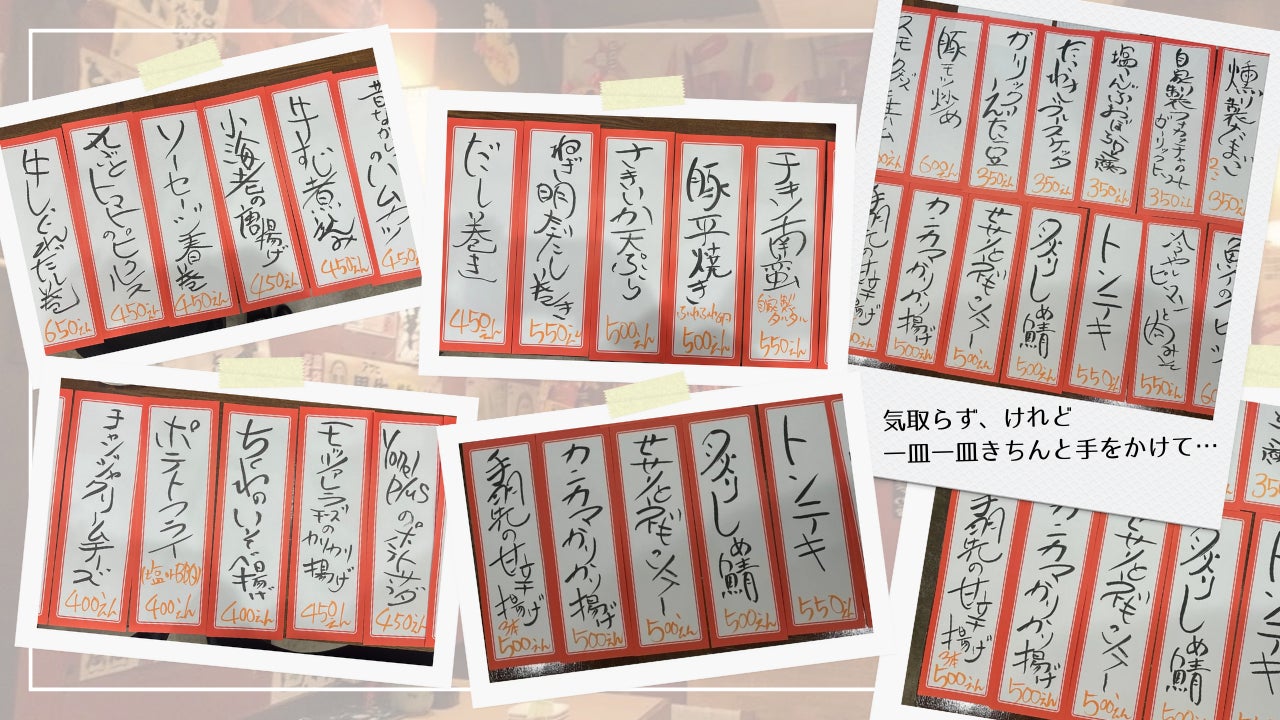 牛しぐれだし巻
650えん
丸ごとトマトのピクルス
450えん
ソーセージ春巻
450えん
小海老の唐揚げ
450えん
牛すじ煮込み
450えん
昔なつかしの
ハムカツ
450
だし巻き
450えん
ねぎ明太だし巻き
550えん
さきいか天ぷら
500えん
豚平焼き
ふわふわ
500えん
チキン南蛮
自家製タルタル
550えん
燻り製たまご
2こ
350
自家製フォカッチャの
ガリックトースト
350えん
塩こんぶおばんざい
350えん
たたわさブルスケッタ
350えん
ガリックえだ豆
350えん
豚モツ炒め
600えん
スモークタン
ピーマンと肉みそ
冷やし
550えん
トンテキ
550えん
炙りしめ鯖
500えん
500えん
カニカマかりかり揚げ
500えん
手羽先の甘辛揚げ
チャンジャクリームチーズ
400えん
ポテトフライ
400えん
ちくわのいそべ揚げ
400えん
モッツァレラ
チーズの
かりかり
揚げ
450えん
Yorel
Plusのポテトサラダ
450えん
手羽先の甘辛揚げ
3本
500えん
カニカマかりかり揚げ
500えん
500えん
炙りしめ鯖
500えん
トンテキ
550えん
気取らず、けれど
一皿一皿きちんと手をかけて…
手羽先の甘辛揚げ
3本
500えん
カニカマかりかり揚げ
500えん
500えん
炙りしめ鯖
500えん
トンテキ